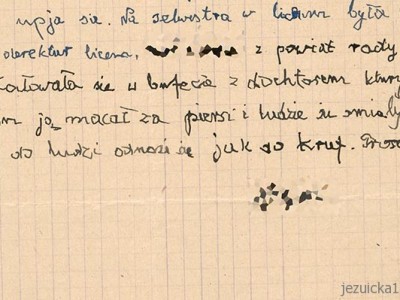 upja sie. Na selwestra w liceum była
derektur licena, z powiat rady
całowała sie w bufecie z dochtorem ktury
ją macał za piersi i ludzie
do ludzi odnosi się jak do kruf.
jezuicka1